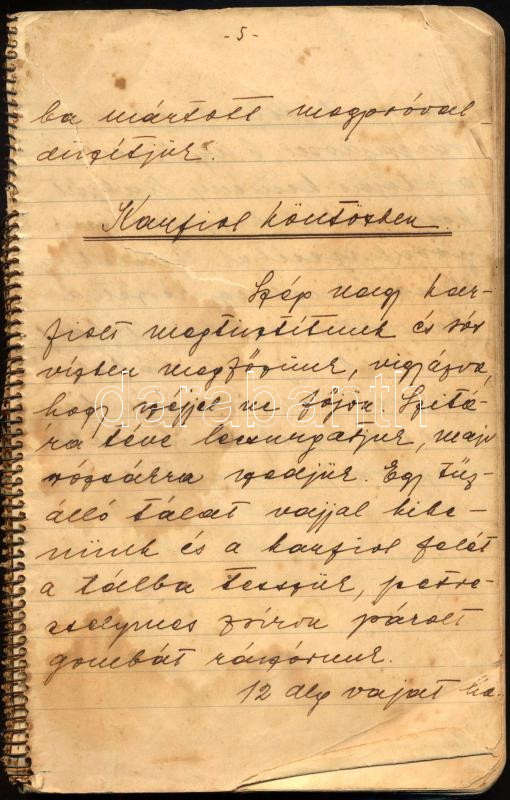 - 5 -
ba mártott megpróval
díszítjük.
Karfiol köntösben.
Szép nagy kar-
fiolt megtisztítunk és sós
vízben megfőzzünk, vigyázva,
hogy széjjel ne főjön. Szitá-
ra téve lecsurgatjuk, majd
rózsákra szedjük. Egy tűz-
álló tálat vajjal kike-
nünk és a karfiol felét
a tálba tesszük, petre-
zselymes zsíron párolt
gombát rászórunk.
12 dkg vajat ha-
darabanth